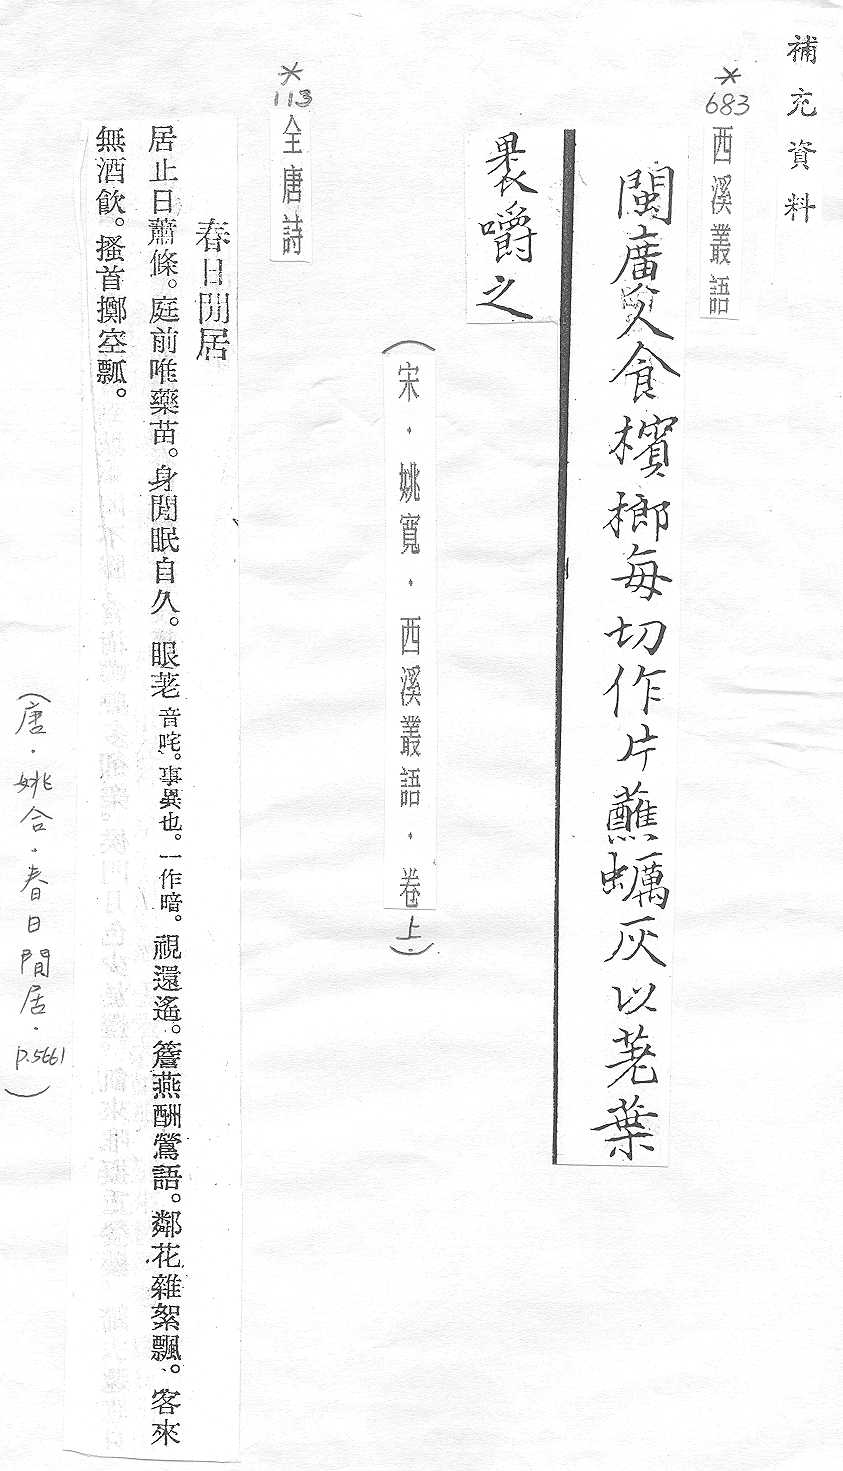 補充資料
*683
西溪叢語
閩廣人食檳榔每切作片蘸蠣灰以荖葉
褁嚼之
（宋．姚寬．西溪叢語．卷上．）
*113
全唐詩
春日閒居
居止日蕭條。庭前唯藥苗。身閒眠自久。眼荖音咤。事異也。一作暗。視還遙。簷燕酬鶯語。鄰花雜絮飄。客來
無酒飲。搔首擲空瓢。
（唐．姚合．春日閒居．p.5661）